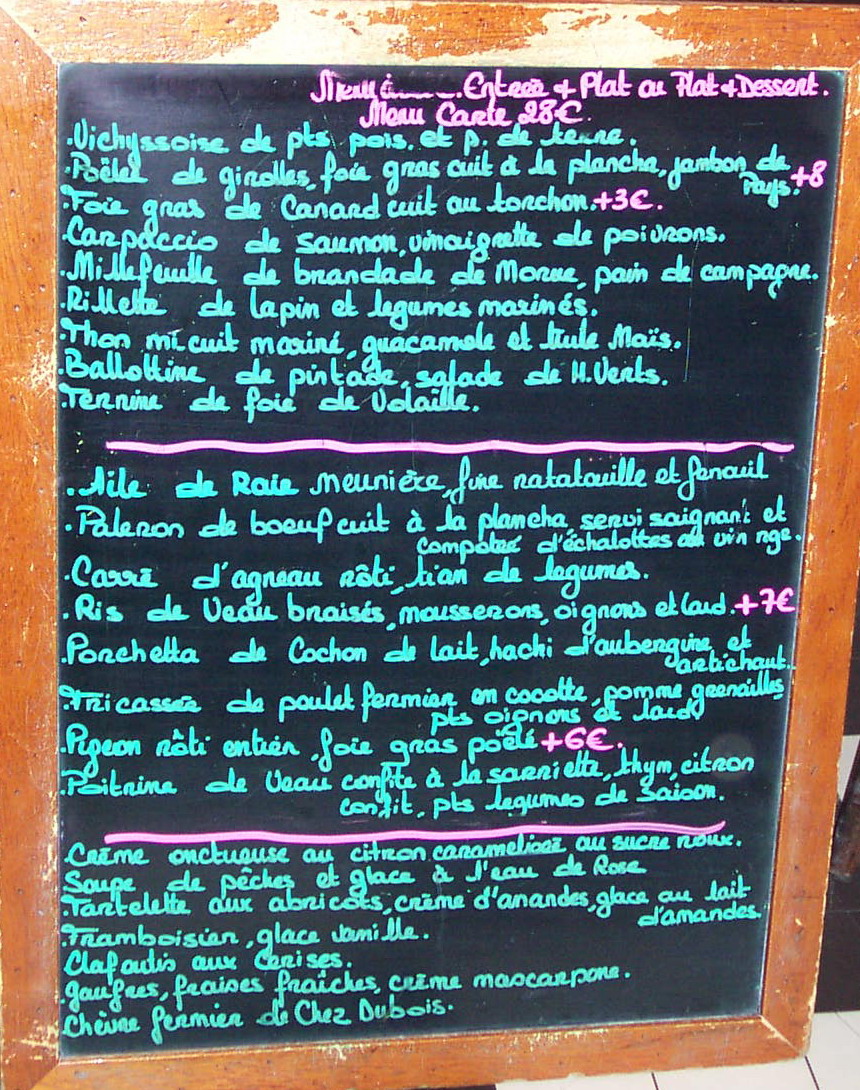 Menu Entree + Plat ou Plat + Dessert.
Menu Carte 28€.
.Vichyssoise de pts pois. et p. de terre.
.Poêlée de girolles, foie gras cuit à la plancha, jambon de
Pays. +8
.Foie gras de Canard cuit au torchon. +3€.
.Carpaccio de saumon, vinaigrette de poivrons.
.Millefeuille de brandade de Morue, pain de campagne.
.Rillette de lapin et legumes marinés.
.Thon mi cuit mariné, guacamole et tuile Maïs.
.Ballottine de pintade, salade de H.Verts.
.Terrine de foie de Volaille.
.Aile de Raie meunière, fine ratatouille et fenouil
.Paleron de boeuf cuit à la plancha servi saignant et
compotée d'échalottes au vin rge.
.Carré d'agneau rôti, tian de legumes.
.Ris de Veau braisés, mousserons, oignons et lard. +7€
.Porchetta de Cochon de lait, hachi d'aubergine et
artichaut.
.Fricassée de poulet fermier en cocotte, pomme grenailles
pts oignons et lard
.Pigeon rôti entier, foie gras poêlé +6€.
.Poitrine de Veau confite à la sarriette, thym, citron
confit, pts legumes de Saison.
.Crème onctueuse au citron caramelisée au sucre roux.
Soupe de pêches et glace à l'eau de Rose
.Tartelette aux abricots, crème d'amandes, glace au lait
d'amandes.
.Framboisier, glace vanille.
Clafoutis aux Cerises.
.gaufres, fraises fraîches, crème mascarpone.
.Chèvre fermier de Chez Dubois.